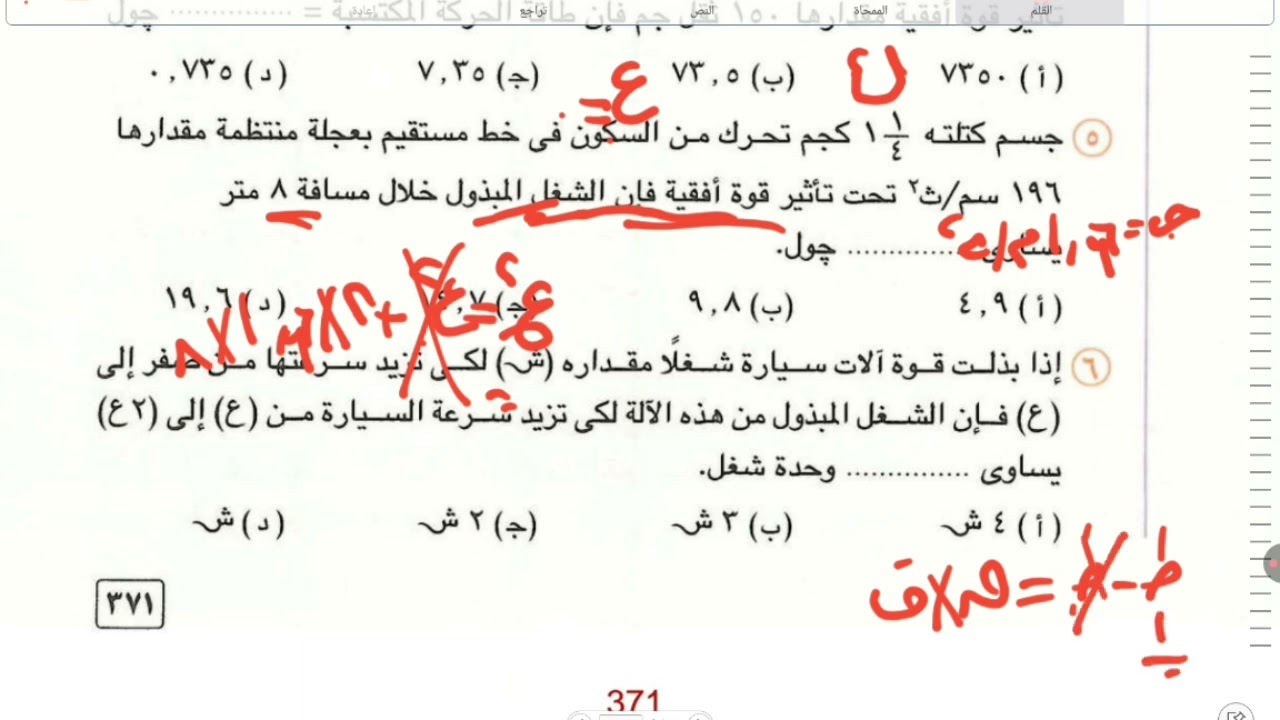 القلم الممحاة النص تراجع إعادة
تأثير قوة أفقية مقدارها ١٥٠ جم فإن طاقة الحركة المكتسبة = .............. چول
(أ) ٧٣٥٠ (ب) ٧٣,٥ (ج) ٧,٣٥ (د) ٠,٧٣٥
٥ جسم كتلته ١ ١/٤ كجم تحرك من السكون فى خط مستقيم بعجلة منتظمة مقدارها
١٩٦ سم/ث٢ تحت تأثير قوة أفقية فإن الشغل المبذول خلال مسافة ٨ متر
يساوى .............. چول.
(أ) ٤,٩ (ب) ٩,٨ (ج) (د) ١٩,٦
٦ إذا بذلت قوة آلات سيارة شغلًا مقداره (ش) لكى تزيد سرعتها من صفر إلى
(ع) فإن الشغل المبذول من هذه الآلة لكى تزيد سرعة السيارة من (ع) إلى (٢ع)
يساوى .............. وحدة شغل.
(أ) ٤ ش (ب) ٣ ش (ج) ٢ ش (د) ش
٣٧١
371